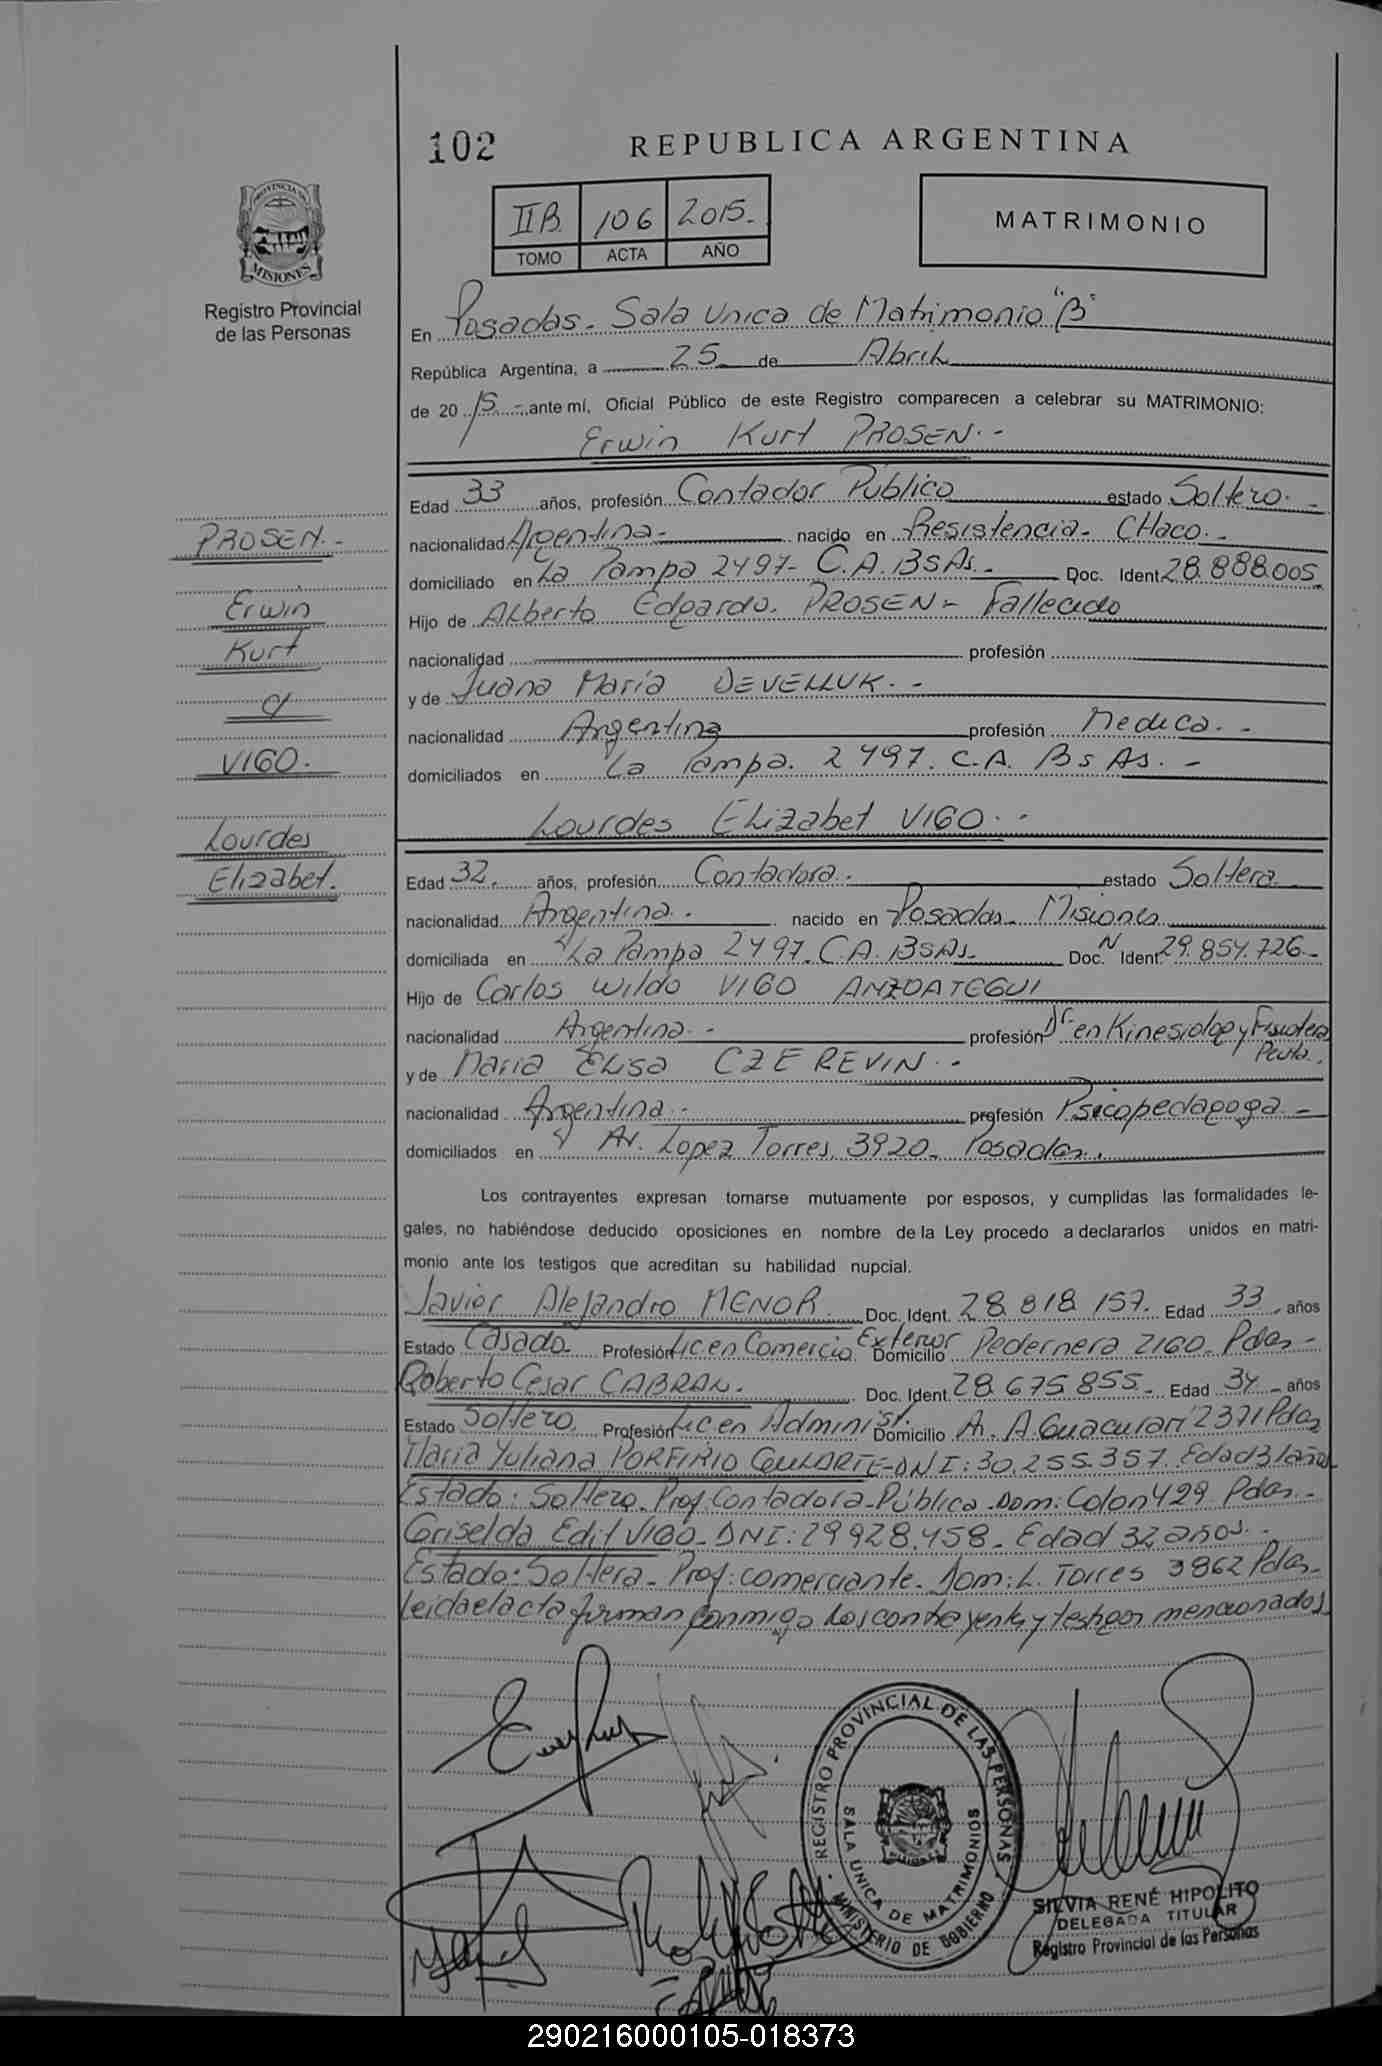 102
REPUBLICA ARGENTINA
IIB. 106 2015.-
TOMO ACTA AÑO
MATRIMONIO
PROVINCIA DE
MISIONES
Registro Provincial
de las Personas
En Posadas - Sala Unica de Matrimonio "B"
República Argentina, a 25 de Abril
de 20 15 - ante mí, Oficial Público de este Registro comparecen a celebrar su MATRIMONIO:
Erwin Kurt PROSEN.-
Edad 33 años, profesión Contador Público estado Soltero.-
nacionalidad Argentina- nacido en Resistencia- CHaco.-
domiciliado en La Pampa 2497- C.A.BSAs.- Doc. Ident 28.888.005
Hijo de Alberto Edgardo. PROSEN- Fallecido
nacionalidad profesión
y de Juana María DEVELLUK.-
nacionalidad Argentina profesión Medica.-
domiciliados en La Pampa. 2497. C.A. Bs As.-
Lourdes Elizabet VIGO.-
PROSEN.-
Erwin
Kurt
c/
VIGO.
Lourdes
Elizabet.
Edad 32. años, profesión Contadora. estado Soltera
nacionalidad Argentina.- nacido en Posadas- Misiones
domiciliada en La Pampa 2497. C.A. BSAs- Doc. N Ident 29.854.726-
Hijo de Carlos Wildo VIGO ANZOATEGUI
nacionalidad Argentina.- profesión Dr. en Kinesiolog y Fisiotera
Peuta.
y de Maria Elisa CZEREVIN.-
nacionalidad Argentina.- profesión Psicopedagoga-
domiciliados en Av. Lopez Torres. 3920- Posadas.
Los contrayentes expresan tomarse mutuamente por esposos, y cumplidas las formalidades le-
gales, no habiéndose deducido oposiciones en nombre de la Ley procedo a declararlos unidos en matri-
monio ante los testigos que acreditan su habilidad nupcial.
Javier Alejandro MENOR. Doc. Ident. 28.818.157. Edad 33 años
Estado Casado. Profesión Lic en Comercio Exterior Domicilio Pedernera 2160- Pdas-
Roberto Cesar CABRAL. Doc. Ident. 28.675.855- Edad 34- años
Estado Soltero. Profesión Lic en Administ. Domicilio Av. A. Guacurari 2371 Pdas
Maria Yuliana PORFIRIO GULARTE-DNI: 30.255.357. Edad 31 años
Estado: Soltero. Prof. Contadora-Pública. Dom: Colon 429 Pdas.-
Griselda Edit VIGO- DNI: 29928.458- Edad 32 años.-
Estado: Soltera- Prof: comerciante. Dom: L. Torres 3862 Pdas-
leida el acta firman conmigo los contrayentes y testigos mencionados
REGISTRO PROVINCIAL DE LAS PERSONAS
SALA UNICA DE MATRIMONIOS
MINISTERIO DE GOBIERNO
SILVIA RENÉ HIPOLITO
DELEGADA TITULAR
Registro Provincial de las Personas
290216000105-018373